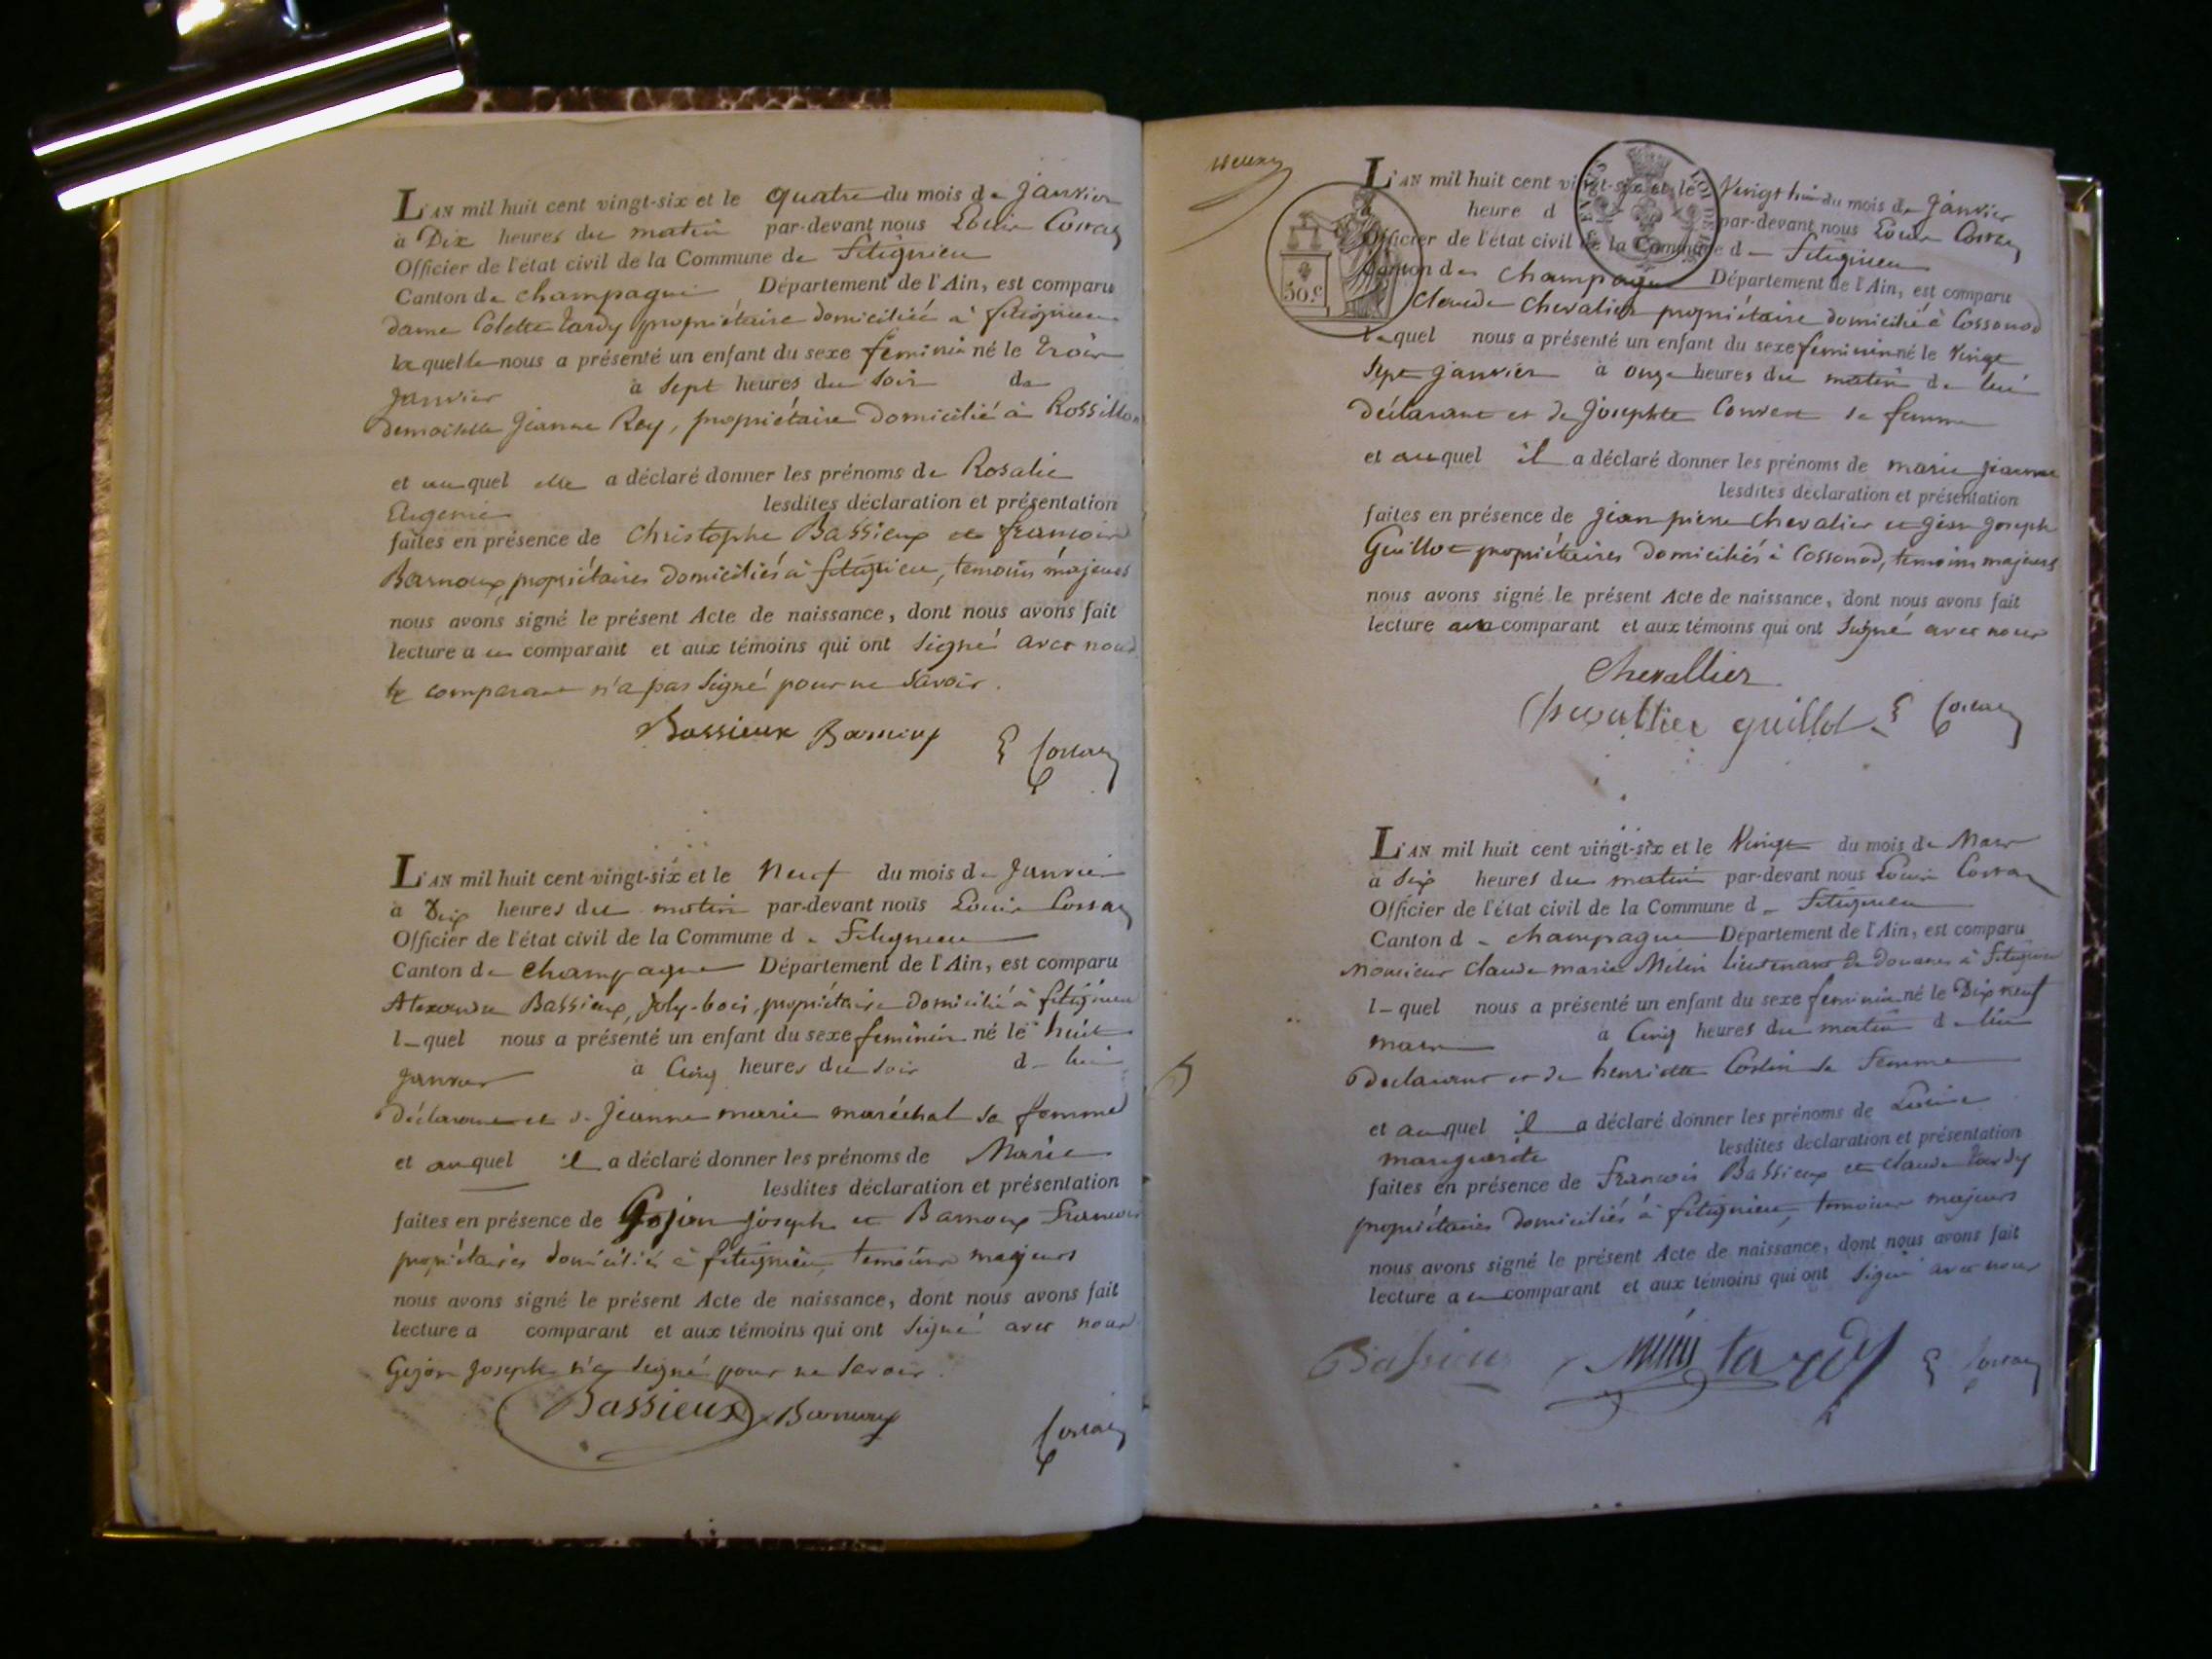 L'AN mil huit cent vingt-six et le quatre du mois de janvier
à Dix heures du matin par-devant nous Louis
Officier de l'état civil de la Commune de fitignieu
Canton de champagne Département de l'Ain, est comparu
dame Colette tardy propriétaire domiciliée à fitignieu
laquelle nous a présenté un enfant du sexe feminin né le trois
janvier à sept heures du soir de
demoiselle jeanne Rey, propriétaire domicilié à Rossillon
et auquel elle a déclaré donner les prénoms de Rosalie
Eugenie lesdites déclaration et présentation
faites en présence de Christophe Bassieux et francois
Barnoux, propriétaires domiciliés à fitignieu, temoins majeurs
nous avons signé le présent Acte de naissance, dont nous avons fait
lecture a comparant et aux témoins qui ont signé avec nous
comparant n'a pas signé pour ne savoir.
Bassieux Barnoux
L'AN mil huit cent vingt-six et le Neuf du mois de Janvier
à Dix heures du matin par-devant nous Louis
Officier de l'état civil de la Commune d Fitignieu
Canton de champagne Département de l'Ain, est comparu
Alexandre Bassieux, joly-bois, propriétaire domicilié à fitignieu
l quel nous a présenté un enfant du sexe feminin né le huit
janvier à Cinq heures du soir d lui
Déclarant et d jeanne marie maréchal sa femme
et auquel il a déclaré donner les prénoms de Marie
lesdites déclaration et présentation
faites en présence de Gojon joseph et Barnoux Francois
propriétaires domiciliés à fitignieu, temoins majeurs
nous avons signé le présent Acte de naissance, dont nous avons fait
lecture a comparant et aux témoins qui ont signé avec nous
Gojon joseph n'a signé pour ne savoir.
Bassieux Barnoux
50.c
L'AN mil huit cent vingt-six et le Vingt huit du mois de janvier
heure d par-devant nous Louis
Officier de l'état civil de la Commune d Fitignieu
Canton de champagne Département de l'Ain, est comparu
Claude Chevalier propriétaire domicilié à Cossonod
lequel nous a présenté un enfant du sexe feminin né le Vingt
sept janvier à onze heures du matin de lui
déclarant et de josephte Convert sa femme
et auquel il a déclaré donner les prénoms de marie jeanne
lesdites déclaration et présentation
faites en présence de jean pierre chevalier et jean joseph
Guillot propriétaires domiciliés à Cossonod, temoins majeurs
nous avons signé le présent Acte de naissance, dont nous avons fait
lecture au comparant et aux témoins qui ont signé avec nous
Chevallier
Chevallier guillot
L'AN mil huit cent vingt-six et le Vingt du mois de Mars
à dix heures du matin par-devant nous Louis
Officier de l'état civil de la Commune d Fitignieu
Canton d champagne Département de l'Ain, est comparu
Monsieur Claude marie lieutenant de Douanes à Fitignieu
l quel nous a présenté un enfant du sexe feminin né le Dix neuf
mars à Cinq heures du matin d lui
Déclarant et de henriette sa femme
et auquel il a déclaré donner les prénoms de Louise
marguerite lesdites déclaration et présentation
faites en présence de Francois Bassieux et claude tardy
propriétaires domiciliés à fitignieu, temoins majeurs
nous avons signé le présent Acte de naissance, dont nous avons fait
lecture a comparant et aux témoins qui ont signé avec nous
Bassieux tardy